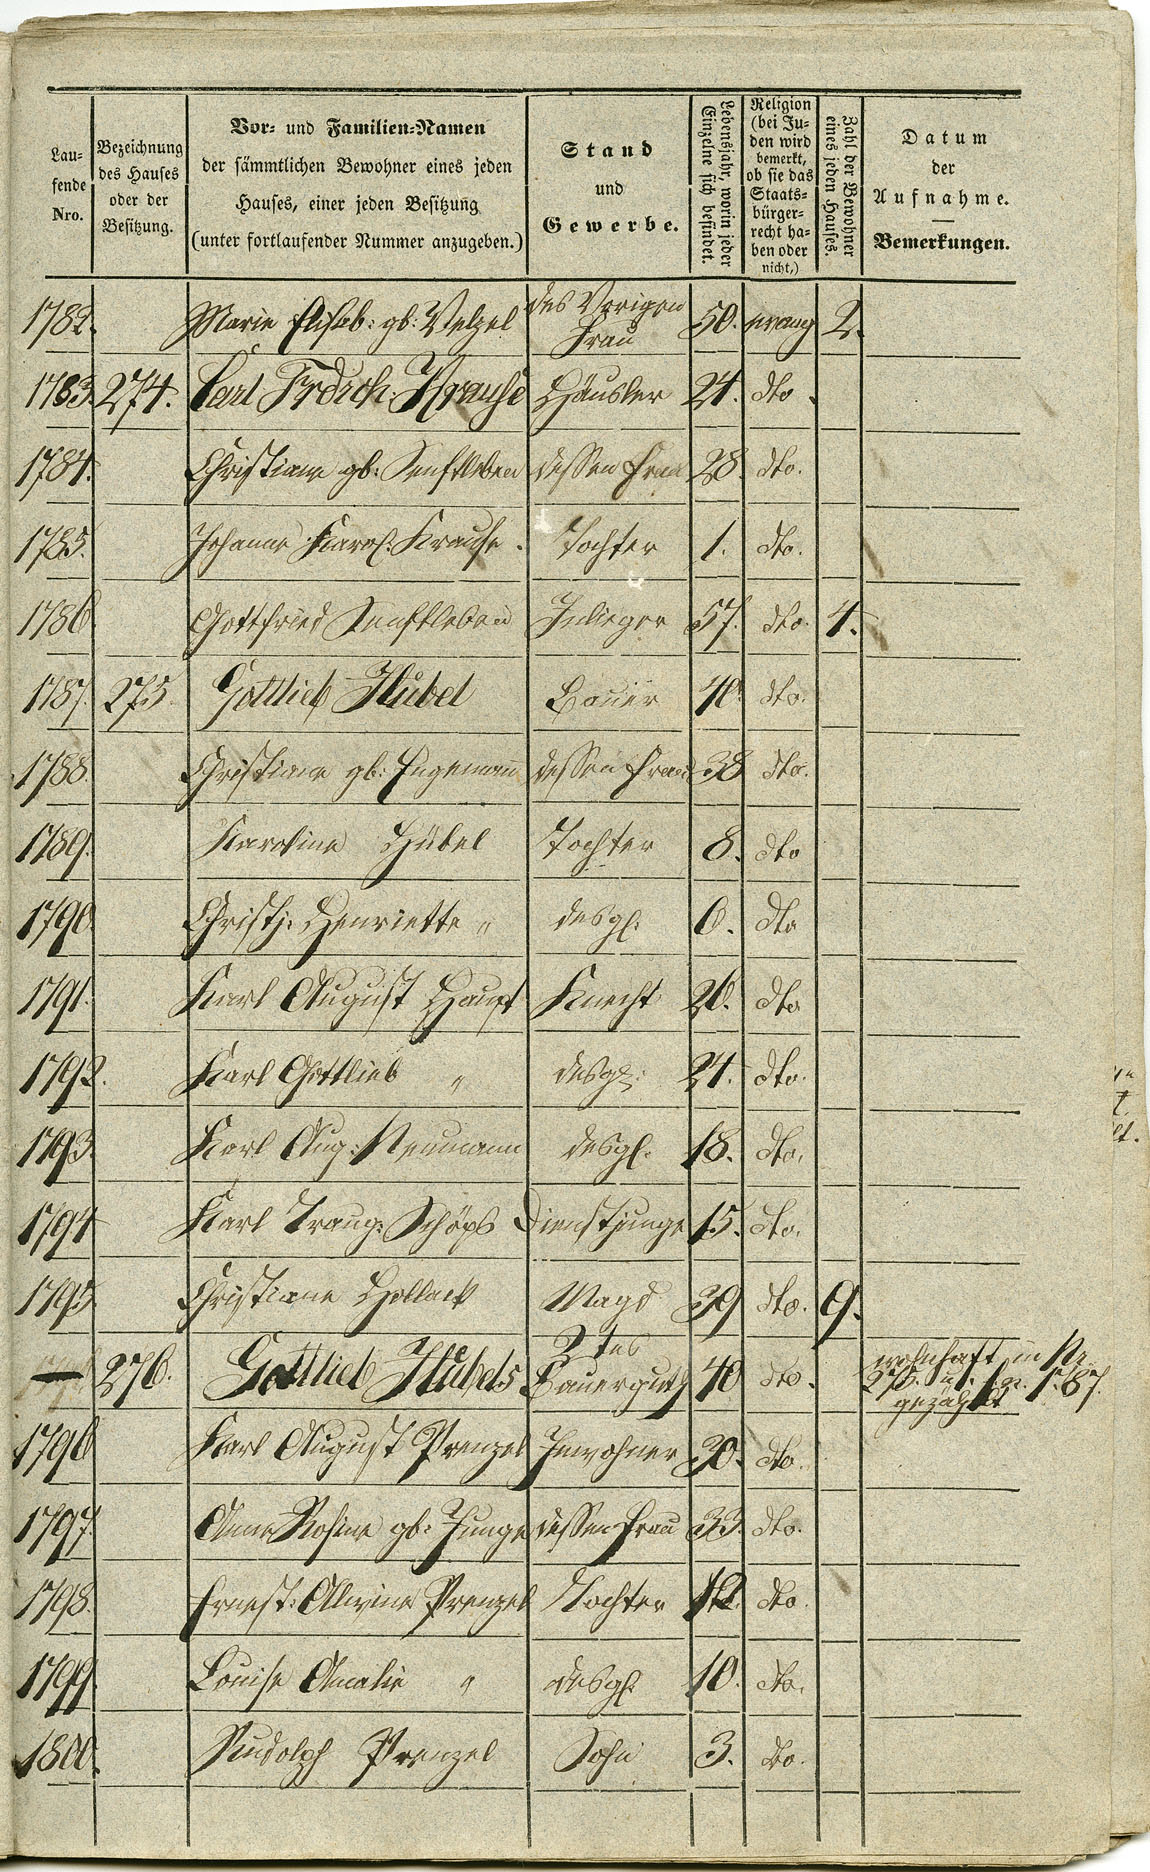 Laufende Nro. Bezeichnung des Hauses oder der Besitzung. Vor- und Familien-Namen der sämmtlichen Bewohner eines jeden Hauses, einer jeden Besitzung (unter fortlaufender Nummer anzugeben.) Stand und Gewerbe. Lebensjahr, worin jeder Einzelne sich befindet. Religion (bei Juden wird bemerkt, ob sie das Staatsbürgerrecht haben oder nicht,) Zahl der Bewohner eines jeden Hauses. Datum der Aufnahme. Bemerkungen.
1782. Marie Elisab: gb: Velzel des Vorigen Frau 50. evang 2.
1783. 274. Carl Frdrch. Krause Häusler 24. dto.
1784. Christiane gb: Senftleben dessen Frau 28. dto.
1785. Johanne Karol. Krause. Tochter 1. dto.
1786 Gottfried Senftleben Inlieger 57. dto. 4.
1787. 275. Gottlieb Hübel Bauer 40. dto.
1788. Christiane gb: Engemann dessen Frau 38 dto.
1789. Karoline Hübel Tochter 8. dto
1790 Christ: Henriette " desgl. 6. dto
1791. Karl August Haupt Knecht 26. dto
1792. Karl Gottlieb " desgl: 24. dto.
1793. Karl Aug: Neumann desgl. 18. dto.
1794 Karl Traug: Schöps Dienstjunge 15. dto.
1795. Christiane Hollack Magd 39 dto. 9.
— 276. Gottlieb Hübels 2tes Bauerguth 40 dto. wohnhaft in No 275. u. sub 1787. gezählt
1796 Karl August Prenzel Inwohner 30. dto.
1797. Anna Rosine gb: Junge dessen Frau 33. dto.
1798. Ernest: Alwine Prenzel Tochter 12 dto.
1799. Louise Amalie " desgl. 10. dto.
1800. Rudolph Prenzel Sohn 3. dto.